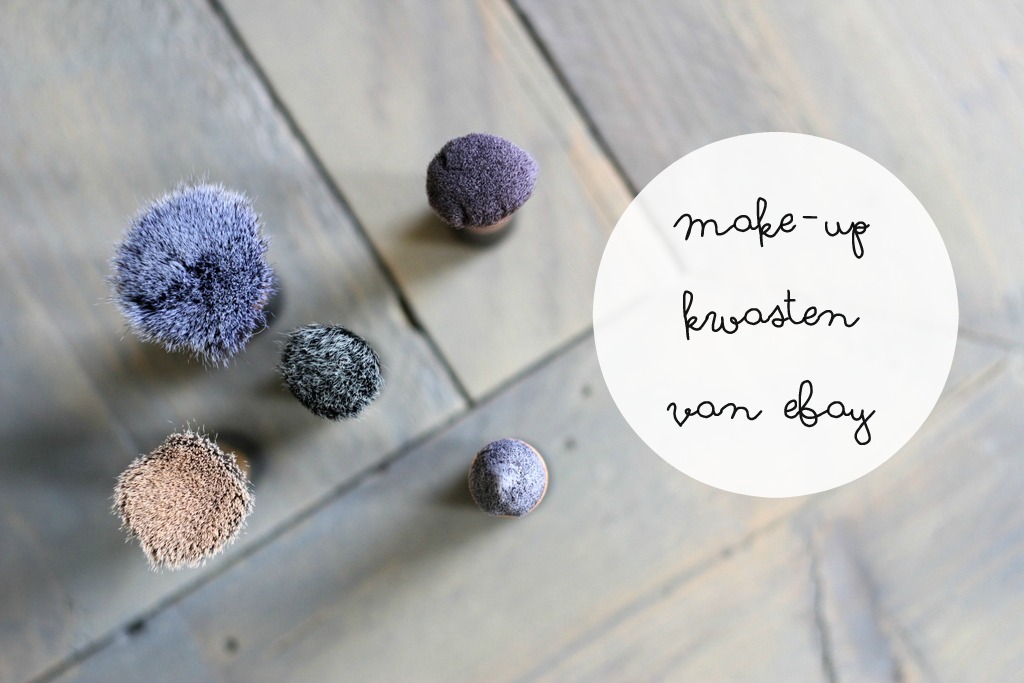 make-up
kwasten
van ebay